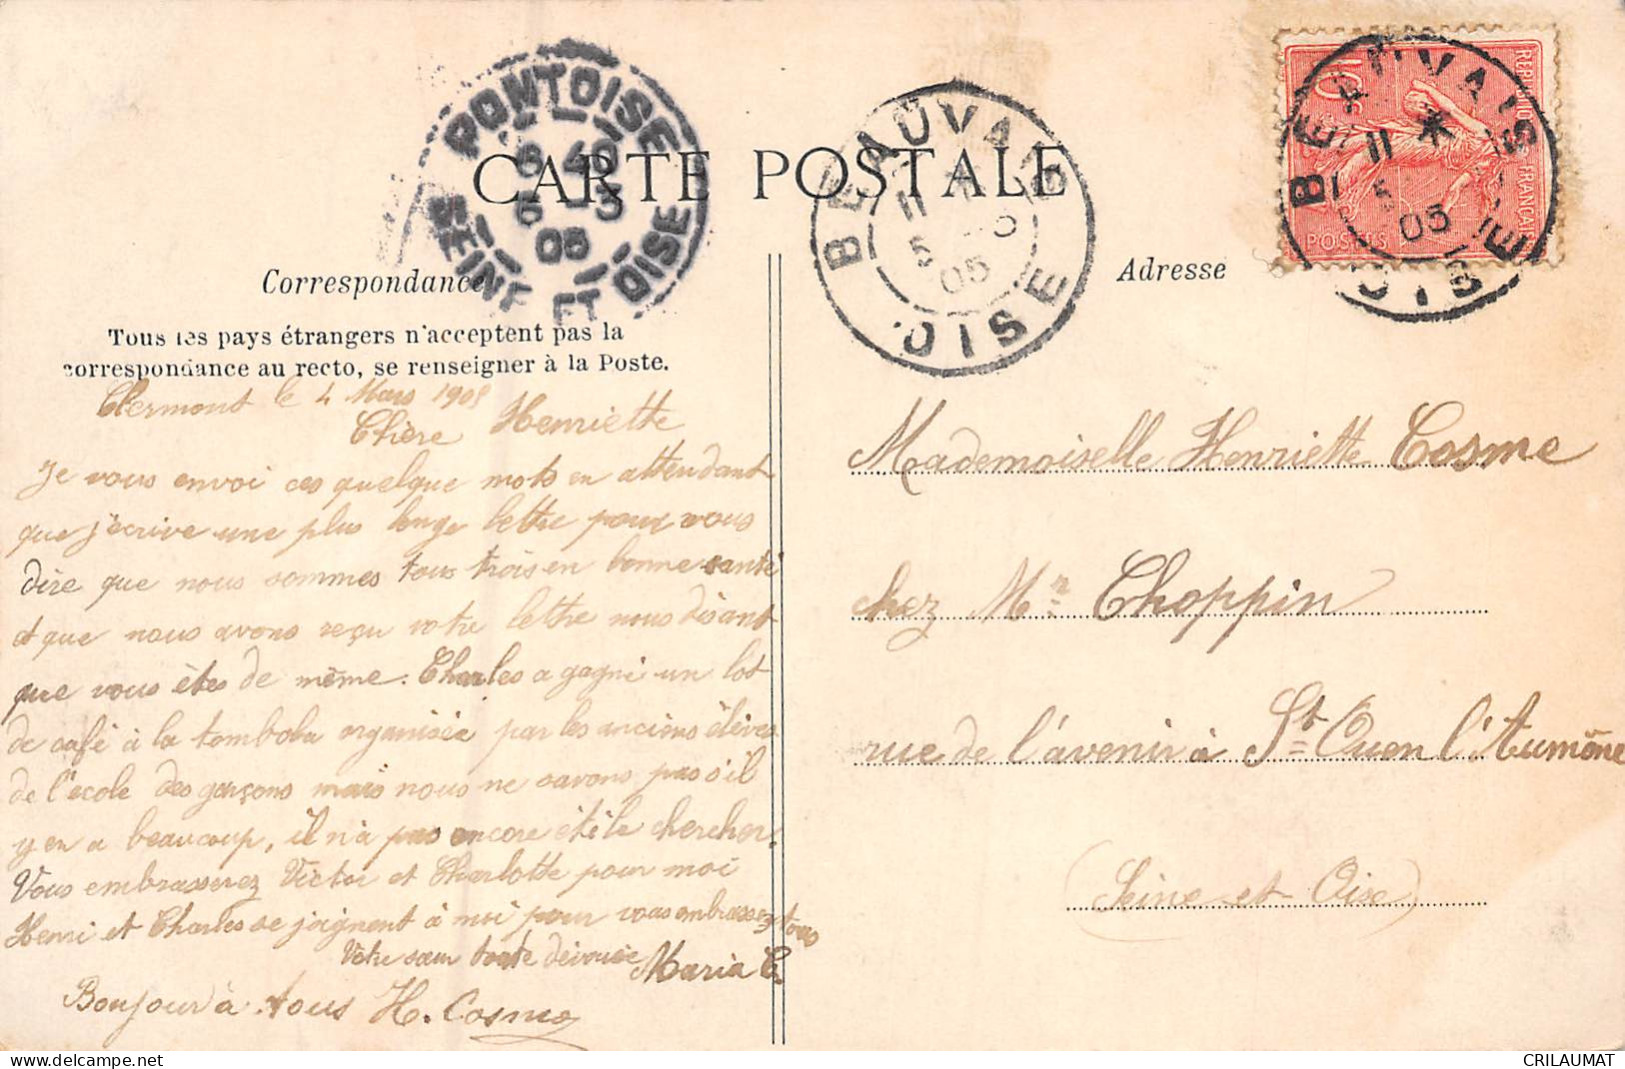 CARTE POSTALE
Correspondance
Adresse
Tous les pays étrangers n'acceptent pas la
correspondance au recto, se renseigner à la Poste.
Clermont le 4 Mars 1905
Chère Henriette
Je vous envoi ces quelque mots en attendant
que j'écrive une plus longe lettre pour vous
dire que nous sommes tous trois en bonne santé
et que nous avons reçu votre lettre nous disant
que vous êtes de même. Charles a gagné un lot
de café à la tombola organisée par les anciens élèves
de l'école des garçons mais nous ne savons pas s'il
y en a beaucoup, il n'à pas encore été le chercher.
Vous embrasserez Victor et Charlotte pour moi
Henri et Charles se joignent à moi pour vous embrassez tous
Votre sœur toute dévouée
Maria C.
Bonjour à tous H. Cosme
Mademoiselle Henriette Cosme
chez Mr Choppin
rue de l'avenir à St Ouen l'Aumône
(Seine-et-Oise)
PONTOISE
SEINE ET OISE
05
BEAUVAIS
OISE
11
5
05
REPUBLIQUE FRANÇAISE
POSTES
10c
BEAUVAIS
OISE
11 *
5
05
CRILAUMAT